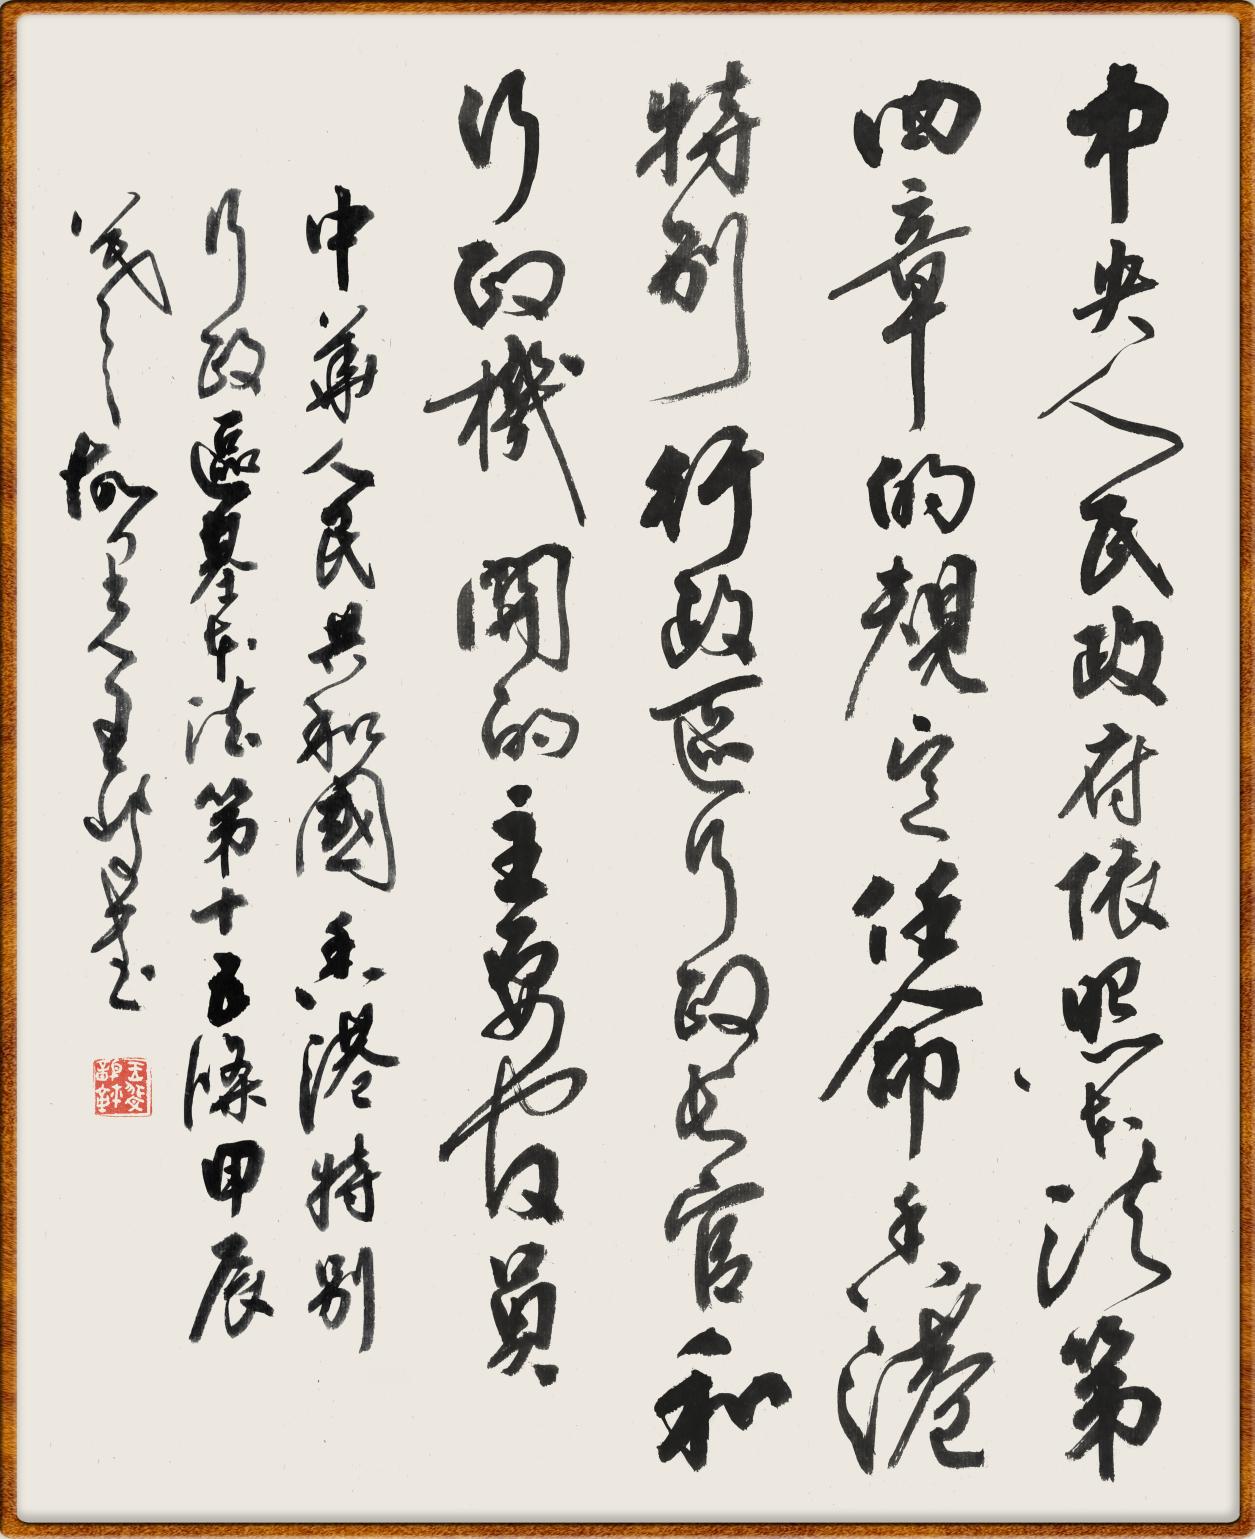 中央人民政府依照本法第
四章的規定任命香港
特別行政區行政長官和
行政機關的主要官員
中華人民共和國香港特別
行政區基本法第十五條甲辰
羲之故里王書